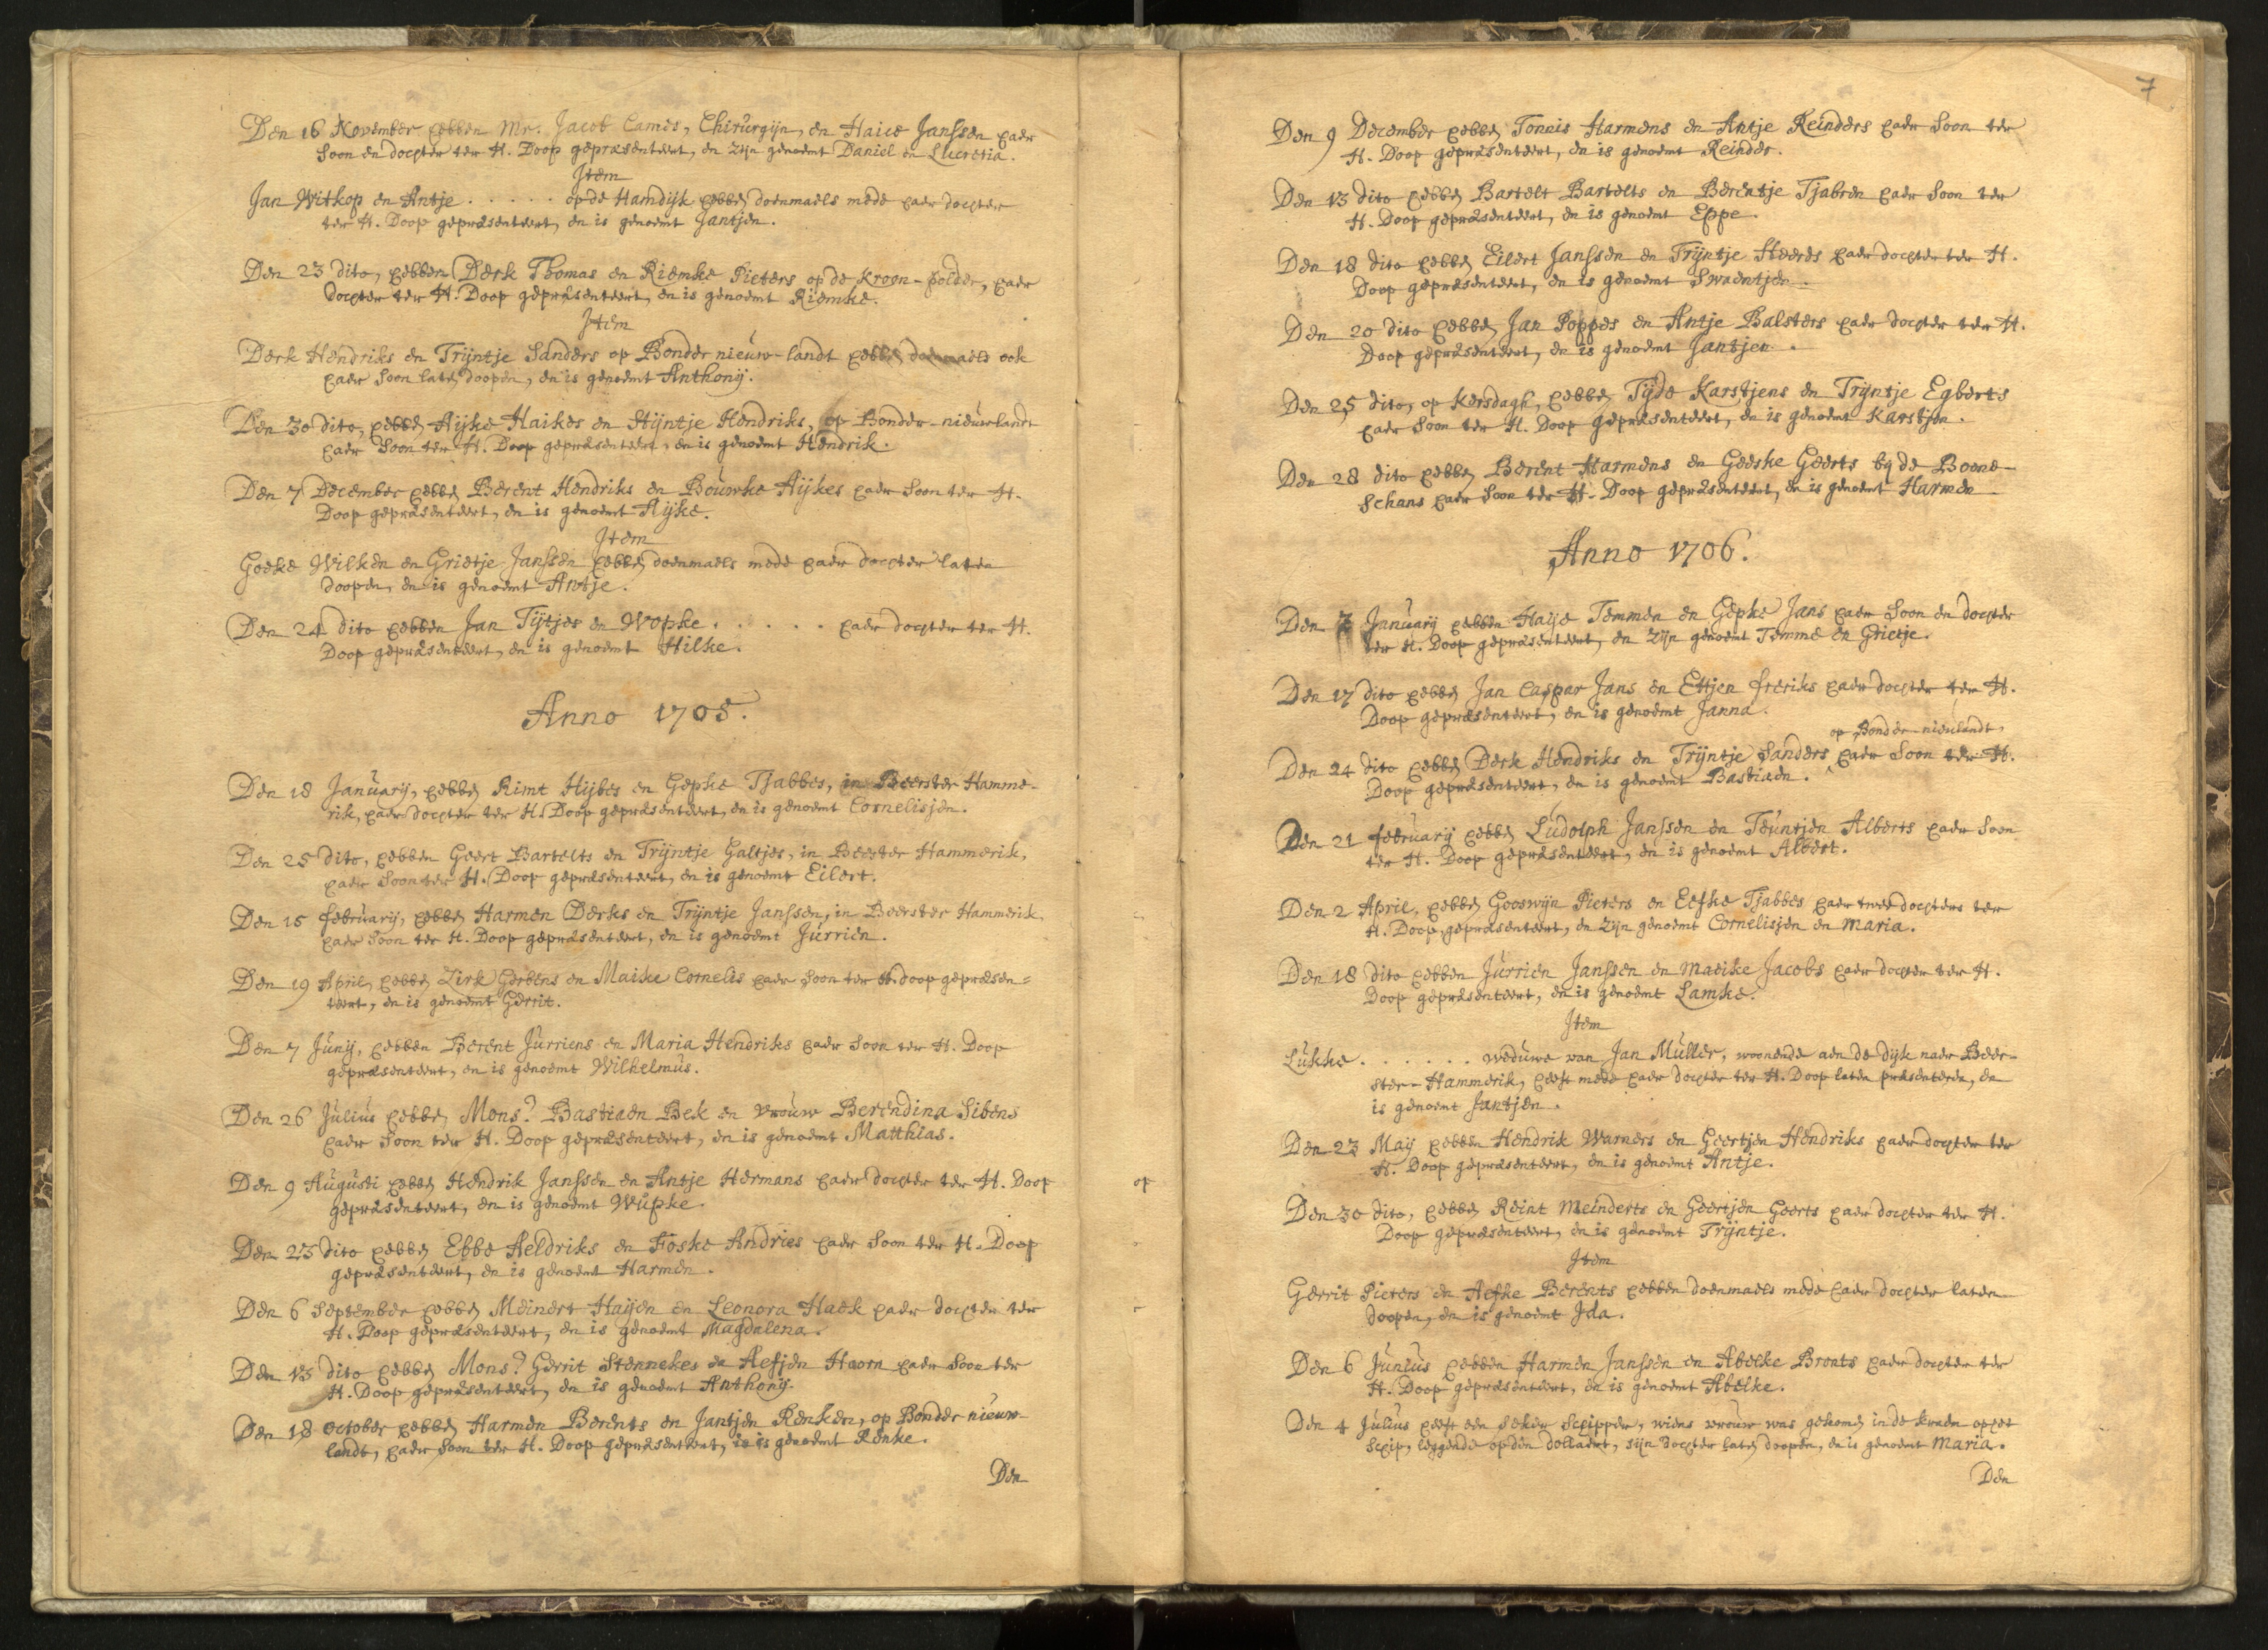 Den 16 November hebben Mr. Jacob Cames, Chirurgijn, en Haice Janssen haer
Soon en dochter ter H. Doop gepræsenteert, en zijn genoemt Daniel en Lucretia.
Item
Jan Witkop en Antje . . . . . op de Hamdijk hebben doenmaels mede haer dochter
ter H. Doop gepræsenteert, en is genoemt Jantjen.
Den 23 dito, hebben Derk Thomas en Riemke Pieters op de Kroon-polder, haer
dochter ter H. Doop gepræsenteert, en is genoemt Riemke.
Item
Derk Hendriks en Trijntje Sanders op Bonder nieuw-landt hebben doenmaels ook
haer Soon laten doopen, en is genoemt Anthonij.
Den 30 dito, hebben Aijke Haikes en Stijntje Hendriks, op Bonder-nieuwlandt
haer Soon ter H. Doop gepræsenteert, en is genoemt Hendrik.
Den 7 December hebben Berent Hendriks en Bouwke Aijkes haer Soon ter H.
Doop gepræsenteert, en is genoemt Aijke.
Item
Goeke Wilken en Grietje Janssen hebben doenmaels mede haer dochter laten
doopen, en is genoemt Antje.
Den 24 dito hebben Jan Tijtjes en Wopke . . . . . haer dochter ter H.
Doop gepræsenteert, en is genoemt Hilke.
Anno 1705.
Den 18 Januarij, hebben Rimt Hijbes en Gepke Tjabbes, in Beerster Hamme-
rik, haer dochter ter H. Doop gepræsenteert, en is genoemt Cornelisjen.
Den 25 dito, hebben Geert Bartelts en Trijntje Galtjes, in Beester Hammerik,
haer Soon ter H. Doop gepræsenteert, en is genoemt Eilert.
Den 15 februarij, hebben Harmen Derks en Trijntje Janssen, in Beerster Hammerik,
haer Soon ter H. Doop gepræsenteert, en is genoemt Jurrien.
Den 19 April, hebben Zirk Gerbens en Maike Cornelis haer Soon ter H. doop gepræsen=
teert, en is genoemt Gerrit.
Den 7 Junij, hebben Berent Jurriens en Maria Hendriks haer Soon ter H. Doop
gepræsenteert, en is genoemt Wilhelmus.
Den 26 Julius hebben Monsr. Bastiaen Bek en vrouw Berendina Sibens
haer Soon ter H. Doop gepræsenteert, en is genoemt Matthias.
Den 9 Augusti hebben Hendrik Janssen en Antje Hermans haer dochter ter H. Doop
gepræsenteert, en is genoemt Wupke.
Den 23 dito hebben Ebbe Aeldriks en Foske Andries haer Soon ter H. Doop
gepræsenteert, en is genoemt Harmen.
Den 6 September hebben Meinert Haijen en Leonora Haek haer dochter ter
H. Doop gepræsenteert, en is genoemt Magdalena.
Den 13 dito hebben Monsr. Gerrit Stennekes en Aefjen Hoorn haer Soon ter
H. Doop gepræsenteert, en is genoemt Anthonij.
Den 18 October hebben Harmen Berents en Jantjen Renken, op Bonder nieuw-
landt, haer Soon ter H. Doop gepræsenteert, is is genoemt Renke.
Den
op
7
Den 9 December hebben Tonnis Harmens en Antje Reinders haer Soon ter
H. Doop gepræsenteert, en is genoemt Reinder.
Den 13 dito hebben Bartelt Bartelts en Berentje Tjabren haer Soon ter
H. Doop gepræsenteert, en is genoemt Eppe.
Den 18 dito hebben Eilert Janssen en Trijntje Heeres haer dochter ter H.
Doop gepræsenteert, en is genoemt Swaentjen.
Den 20 dito hebben Jan Poppes en Antje Balsters haer dochter ter H.
Doop gepræsenteert, en is genoemt Jantjen.
Den 25 dito, op Kersdagh, hebben Tijde Karstjens en Trijntje Egberts
haer Soon ter H. Doop gepræsenteert, en is genoemt Karstjen.
Den 28 dito hebben Berent Harmens en Geeske Geerts bij de Boone-
schans haer Soon ter H. Doop gepræsenteert, en is genoemt Harmen
Anno 1706.
Den 7 Januarij hebben Haije Temmen en Gepke Jans haer Soon en dochter
ter H. Doop gepræsenteert, en zijn genoemt Temme en Grietje.
Den 17 dito hebben Jan Caspar Jans en Ettjen freriks haer dochter ter H.
Doop gepræsenteert, en is genoemt Janna.
op Bonder-nieulandt,
Den 24 dito hebben Derk Hendriks en Trijntje Sanders haer Soon ter H.
Doop gepræsenteert, en is genoemt Bastiaen.
Den 21 februarij hebben Ludolph Janssen en Teuntjen Alberts haer Soon
ter H. Doop gepræsenteert, en is genoemt Albert.
Den 2 April, hebben Gooswijn Pieters en Eefke Tjabbes haer twee dochters ter
H. Doop gepræsenteert, en zijn genoemt Cornelisjen en Maria.
Den 18 dito hebben Jurrien Janssen en Maeike Jacobs haer dochter ter H.
Doop gepræsenteert, en is genoemt Lamke.
Item
Lukke . . . . . . weduwe van Jan Muller, woonende aen de dijk naer Beer-
ster-Hammerik, heeft mede haer dochter ter H. Doop laten præsenteren, en
is genoemt Jantjen.
Den 23 Maij hebben Hendrik Warners en Geertjen Hendriks haer dochter ter
H. Doop gepræsenteert, en is genoemt Antje.
Den 30 dito, hebben Reint Meinderts en Geertjen Geerts haer dochter ter H.
Doop gepræsenteert, en is genoemt Trijntje.
Item
Gerrit Pieters en Aefke Berents hebben doenmaels mede haer dochter laten
doopen, en is genoemt Ida.
Den 6 Junius hebben Harmen Janssen en Abelke Bronts haer dochter ter
H. Doop gepræsenteert, en is genoemt Abelke.
Den 4 Julius heeft een seker schipper, wiens vrouw was gekomen in de kraem op het
schip, leggende op den dollaert, sijn dochter laten doopen, en is genoemt Maria.
Den